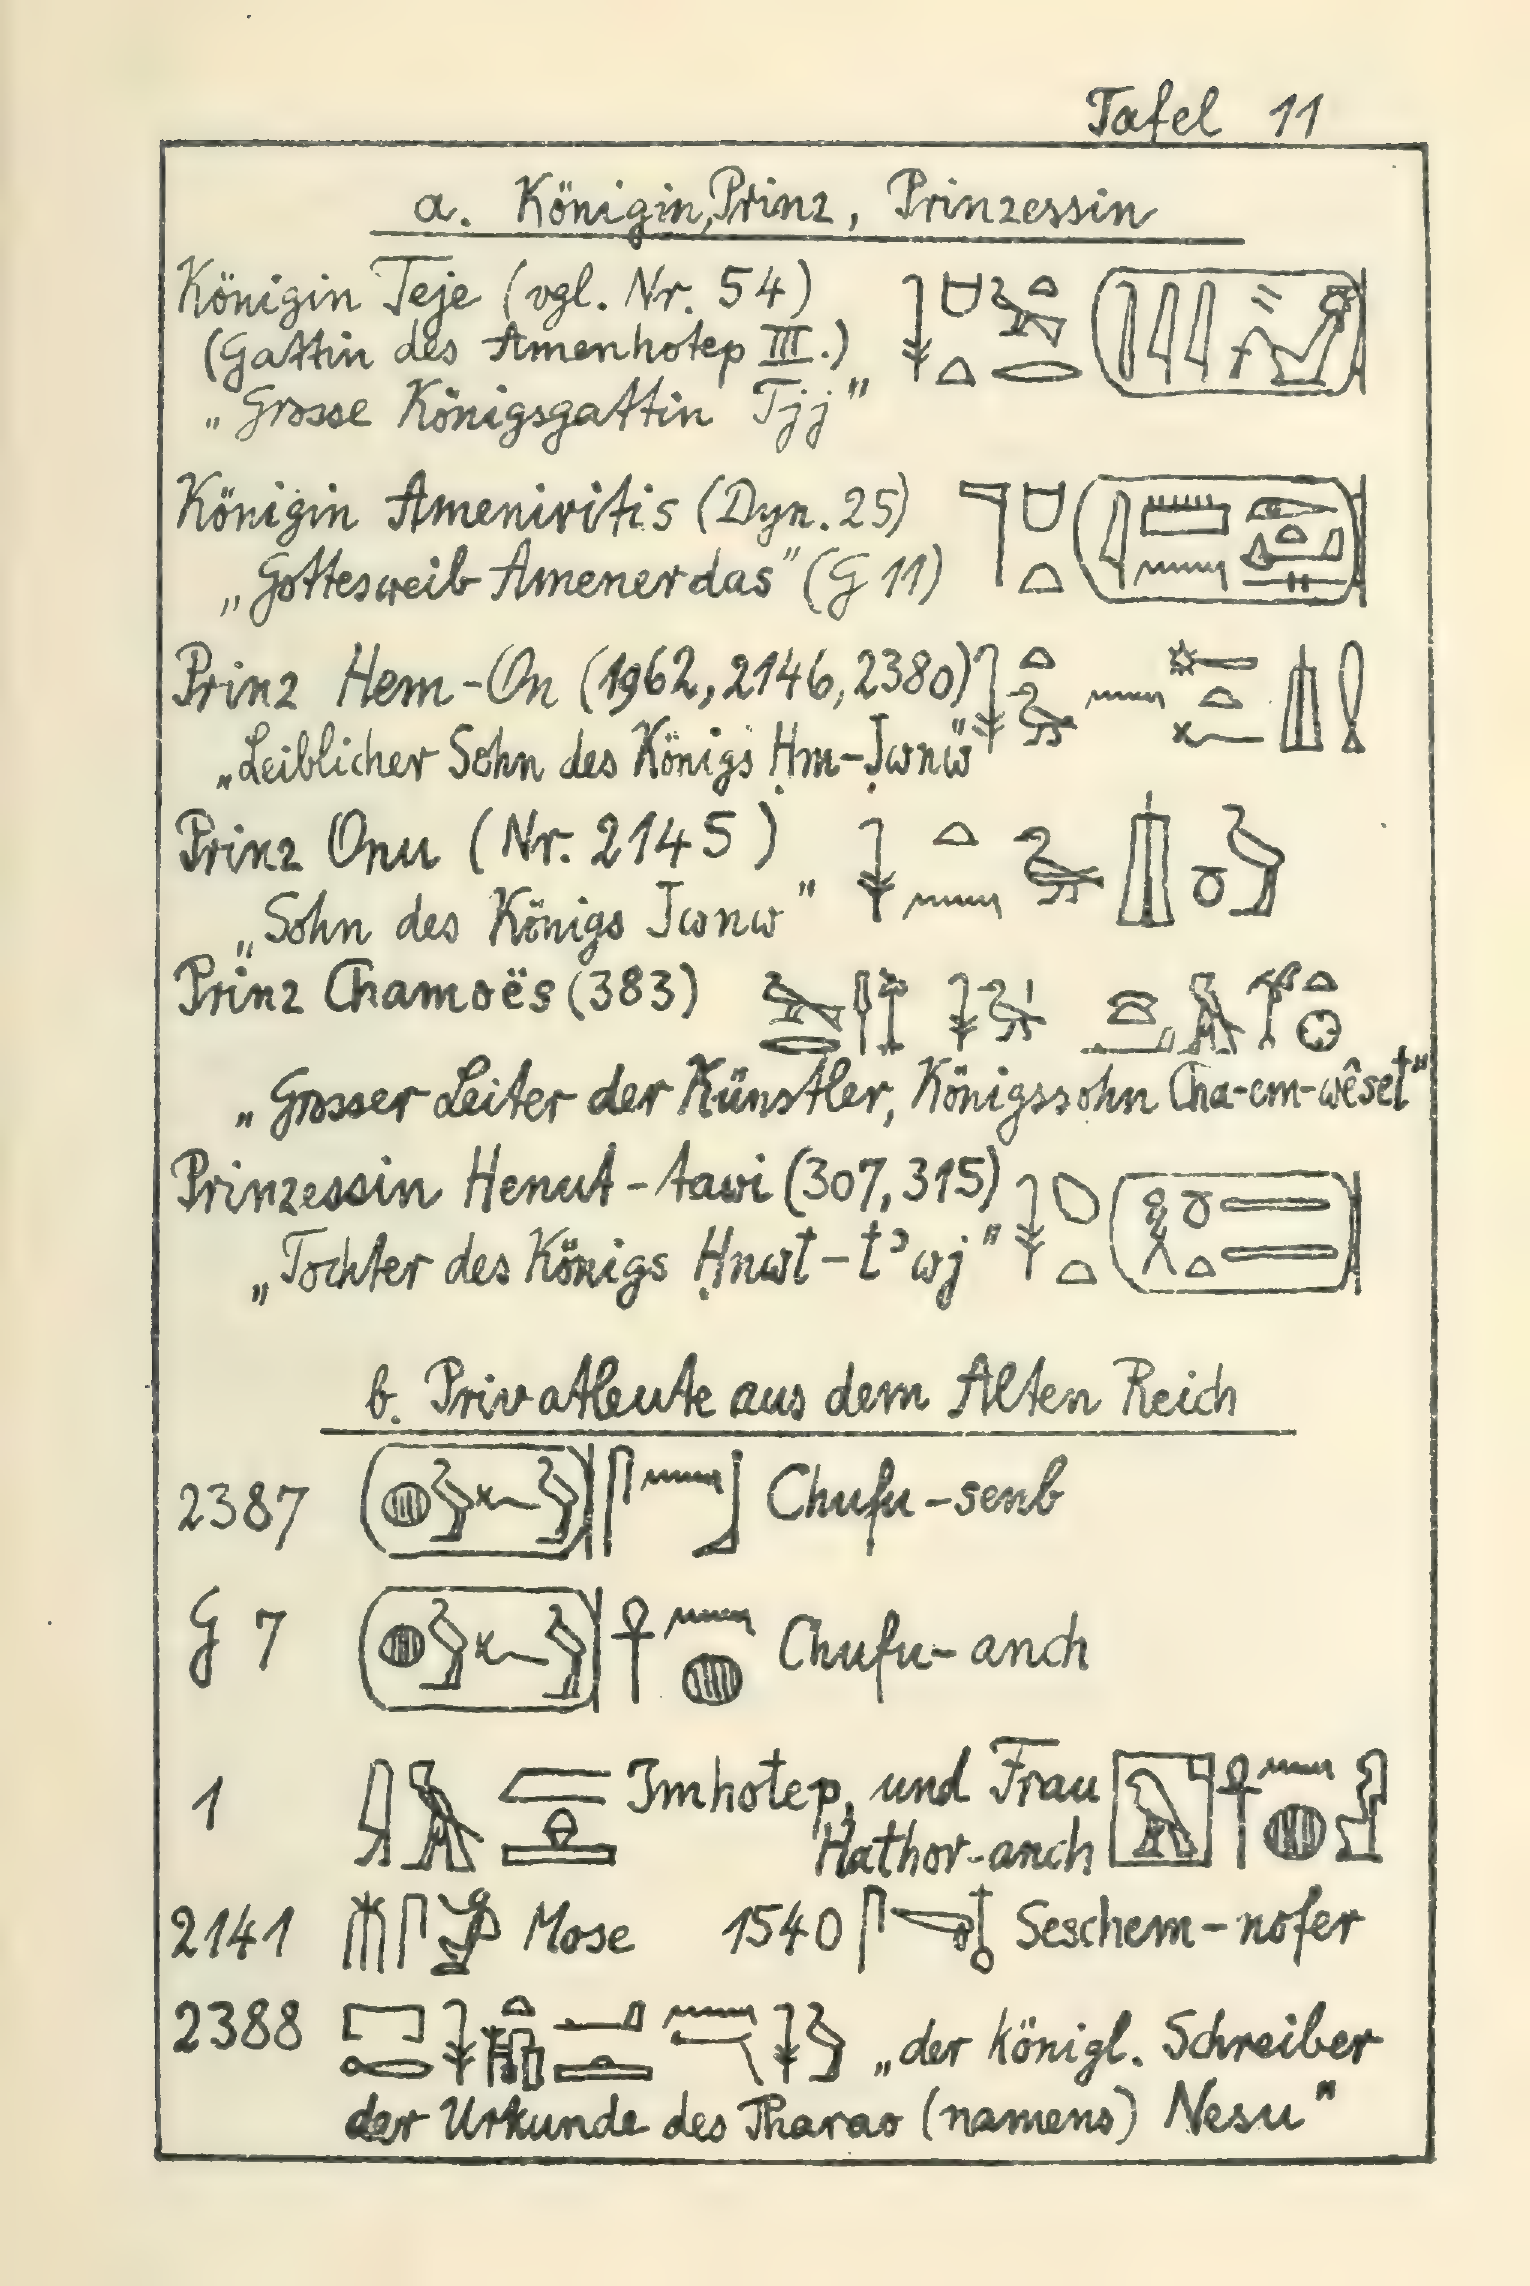 Tafel 11
a. Königin, Prinz, Prinzessin
Königin Teje (vgl. Nr. 54)
(Gattin des Amenhotep III.)
„Grosse Königsgattin Tjj"
Königin Ameniritis (Dyn. 25)
„Gottesweib Amenerdas" (G 11)
Prinz Hem-On (1962, 2146, 2380)
„Leiblicher Sohn des Königs Ḥm-Jwnw"
Prinz Onu (Nr. 2145)
„Sohn des Königs Jwnw"
Prinz Chamoës (383)
„Grosser Leiter der Künstler, Königssohn Cha-em-wêset"
Prinzessin Henut-tawi (307, 315)
„Tochter des Königs Ḥnwt-tꜣwj"
b. Privatleute aus dem Alten Reich
2387 Chufu-senb
G 7 Chufu-anch
1 Imhotep, und Frau
Hathor-anch
2141 Mose 1540 Seschem-nofer
2388 „der königl. Schreiber
der Urkunde des Pharao (namens) Nesu"